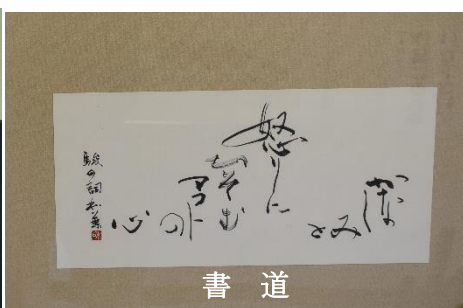 かなし
みと
怒りに
ひそむ
まことの
心
駿の詞
書道